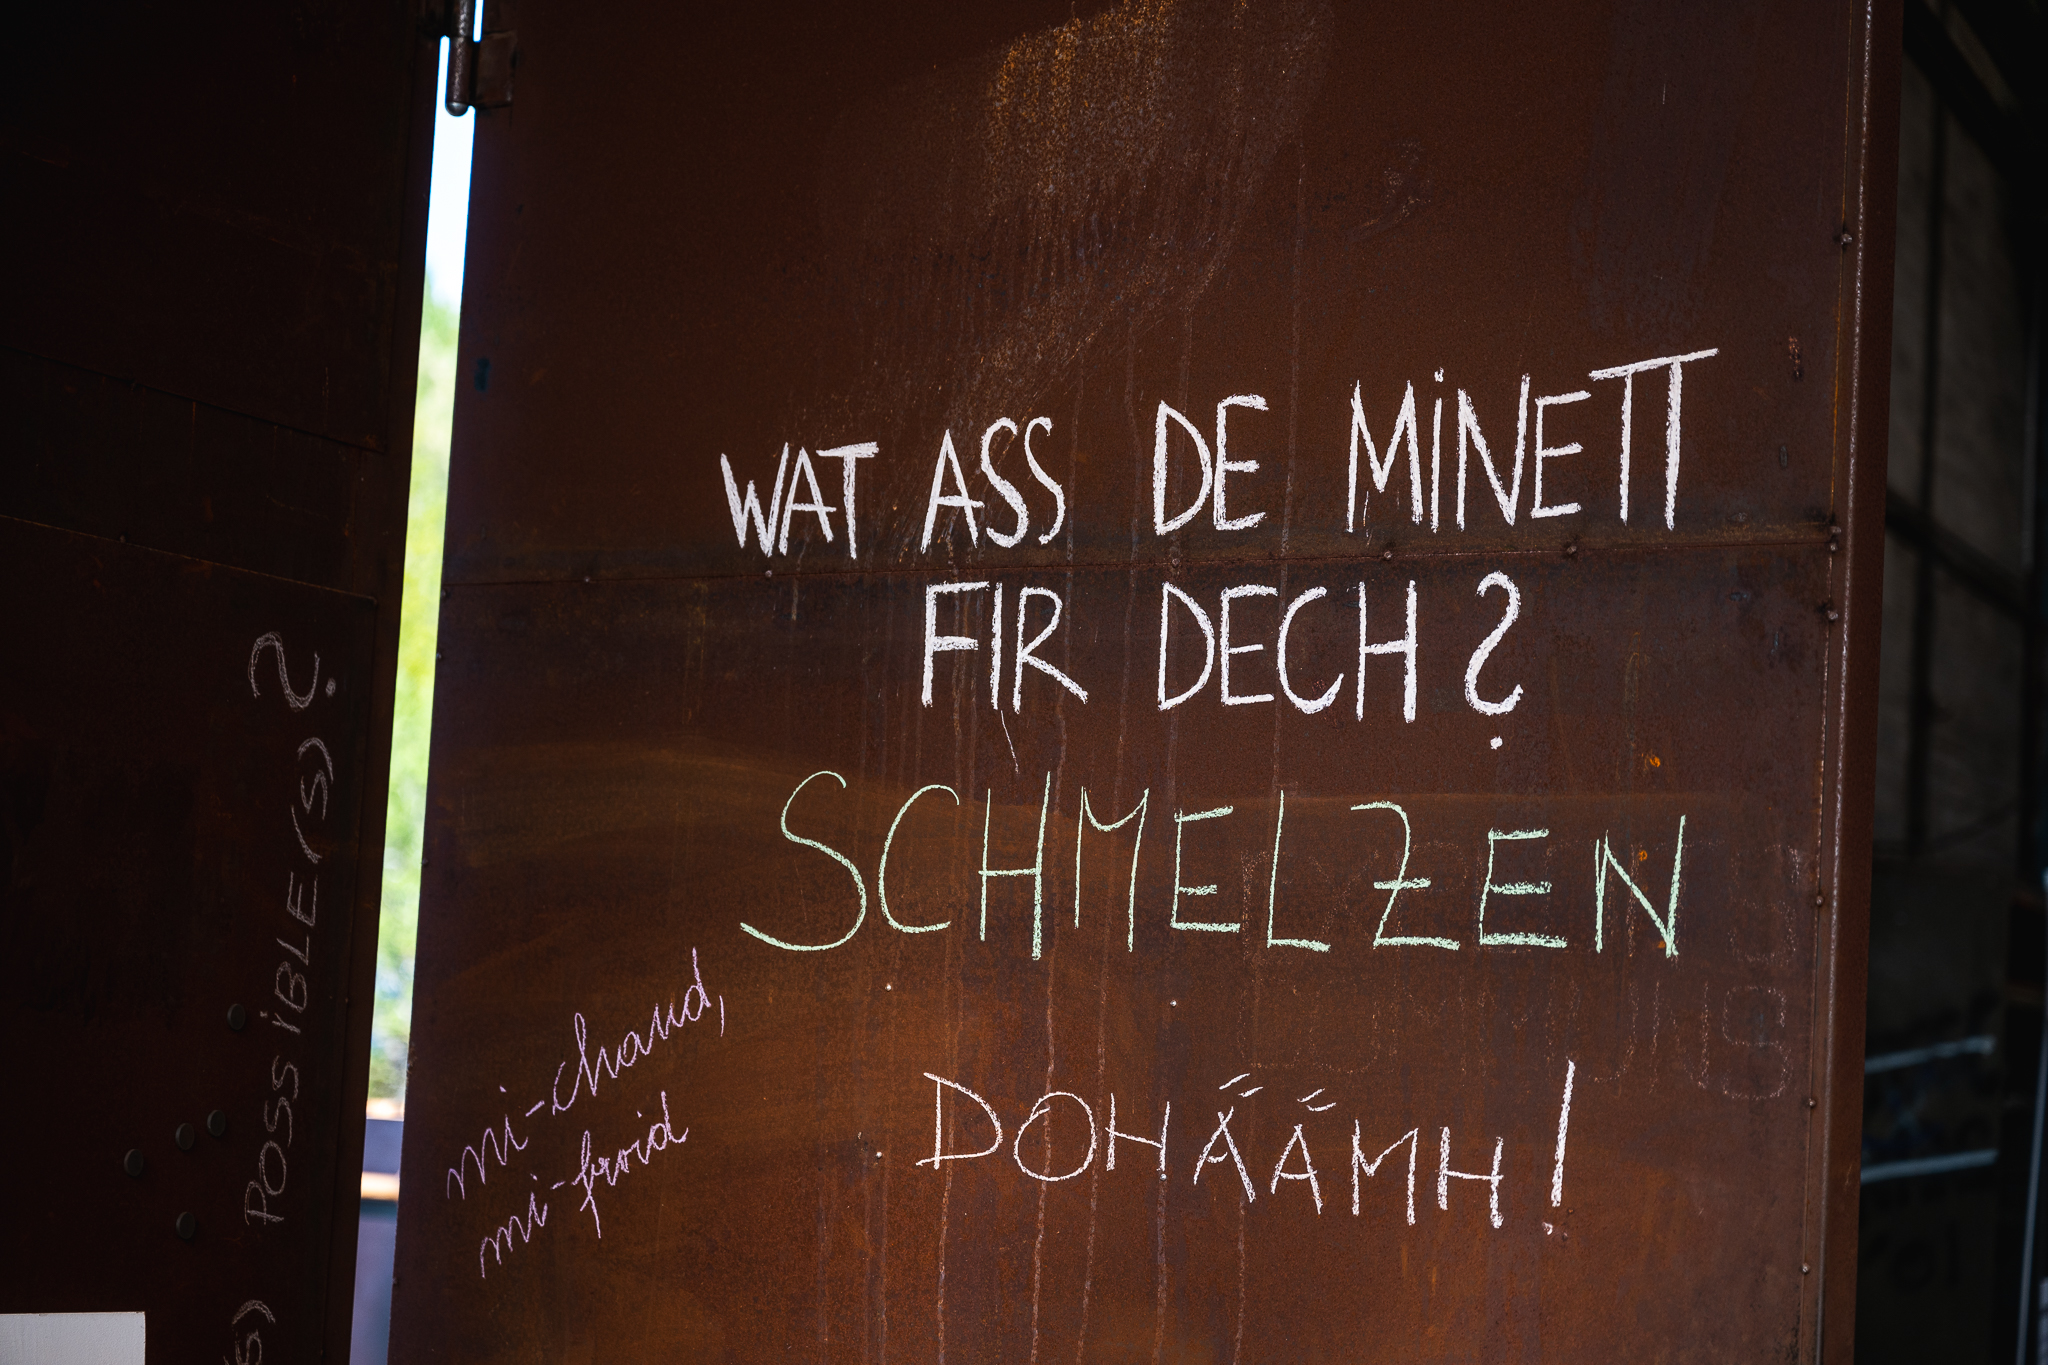 WAT ASS DE MINETT
FIR DECH?
SCHMELZEN
mi-chaud,
mi-froid
DOHÄÄMH!
POSSIBLE(S)?